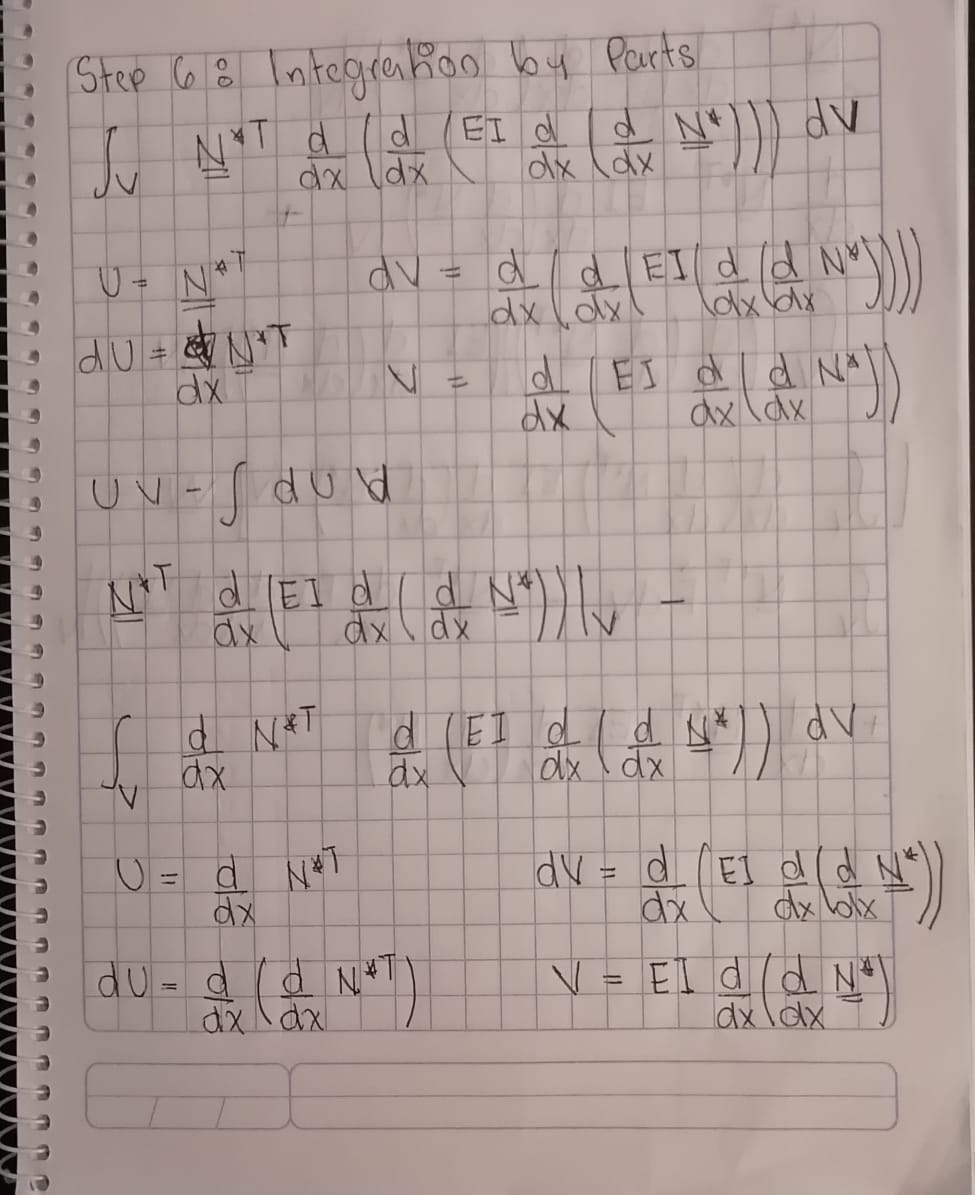 Step 6: Integration by Parts
∫_V N^*T d/dx (d/dx (EI d/dx (d/dx N^*))) dV
U = N^*T dV = d/dx (d/dx (EI (d/dx (d/dx N^*))))
dU = d/dx N^*T V = d/dx (EI d/dx (d/dx N^*))
UV - ∫ dU V
N^*T d/dx (EI d/dx (d/dx N^*))|_V -
∫_V d/dx N^*T d/dx (EI d/dx (d/dx N^*)) dV
U = d/dx N^*T dV = d/dx (EI d/dx (d/dx N^*))
dU = d/dx (d/dx N^*T) V = EI d/dx (d/dx N^*)